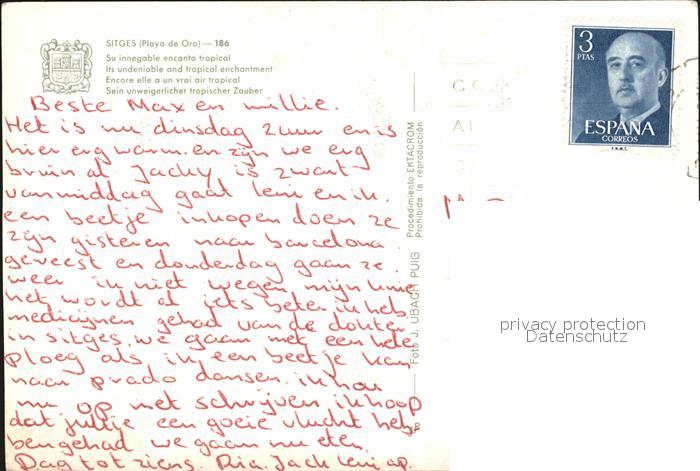 SITGES (Playa de Oro) — 186
Su innegable encanto tropical
Its undeniable and tropical enchantment
Encore elle a un vrai air tropical
Sein unweigerlicher tropischer Zauber
Beste Max en millie.
Het is nu dinsdag 2 uur en is
hier erg warm. en zijn we erg
bruin al Jacky is zwart
vanmiddag gaat leni en ik.
een beetje inkopen doen ze
zijn gisteren naar barcelona
geveest en donderdag gaan ze.
weer ik niet wegen mijn knie
het wordt al iets beter ik heb
medicijnen gehad van de dokter
in sitges. we gaan met een hele
ploeg als ik een beetje kan
naar prado dansen. ik hou
nu op met schrijven ik hoop
dat jullie een goeie vlucht heb
ben gehad we gaan nu eten.
Dag tot ziens. Ria. Jack leni ap.
Procedimiento EKTACROM
Prohibida la reproducción
Foto J. UBACH PUIG
3
PTAS
ESPAÑA
CORREOS
F.N.M.T.
privacy protection
Datenschutz